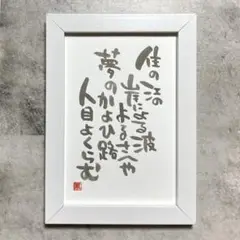 住の江の
岸による波
よるさへや
夢のかよひ路
人目よくらむ